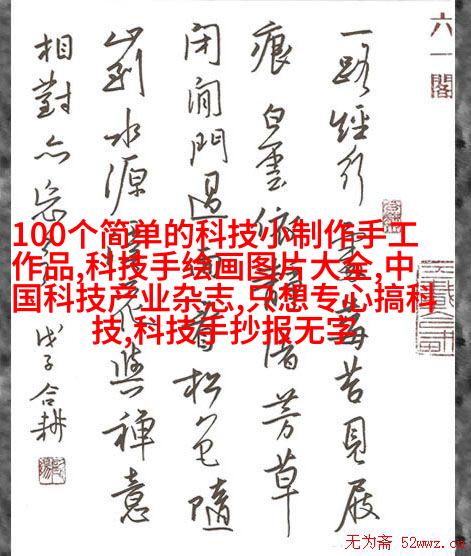 六一閣
一路經行處莓苔見屐
痕白雲依静渚芳草
闭闲門過雨看松色隨
山到水源溪花與禅意
相對亦忘言
戊子合耕
100个简单的科技小制作手工
作品,科技手绘画图片大全,中
国科技产业杂志,只想专心搞科
技,科技手抄报无字
无为斋 52wwz.cn